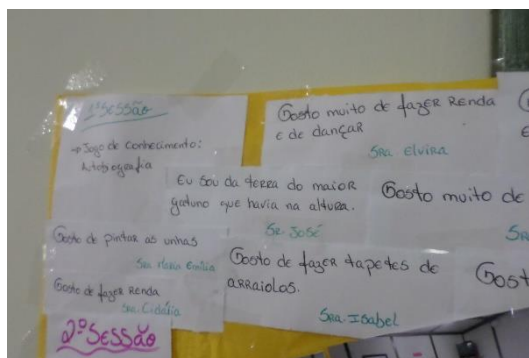 1ª SESSÃO
→ Jogo de conhecimento:
Autobiografia
Gosto muito de fazer Renda
e de dançar
Sra Elvira
Eu sou da terra do maior
gatuno que havia na altura.
Sr. José
Gosto muito de
Gosto de pintar as unhas
Sra Maria Emília
Gosto de fazer Renda
Sra. Cidália
Gosto de fazer tapetes de
ARRaiolos.
Sra. Isabel
2ª SESSÃO